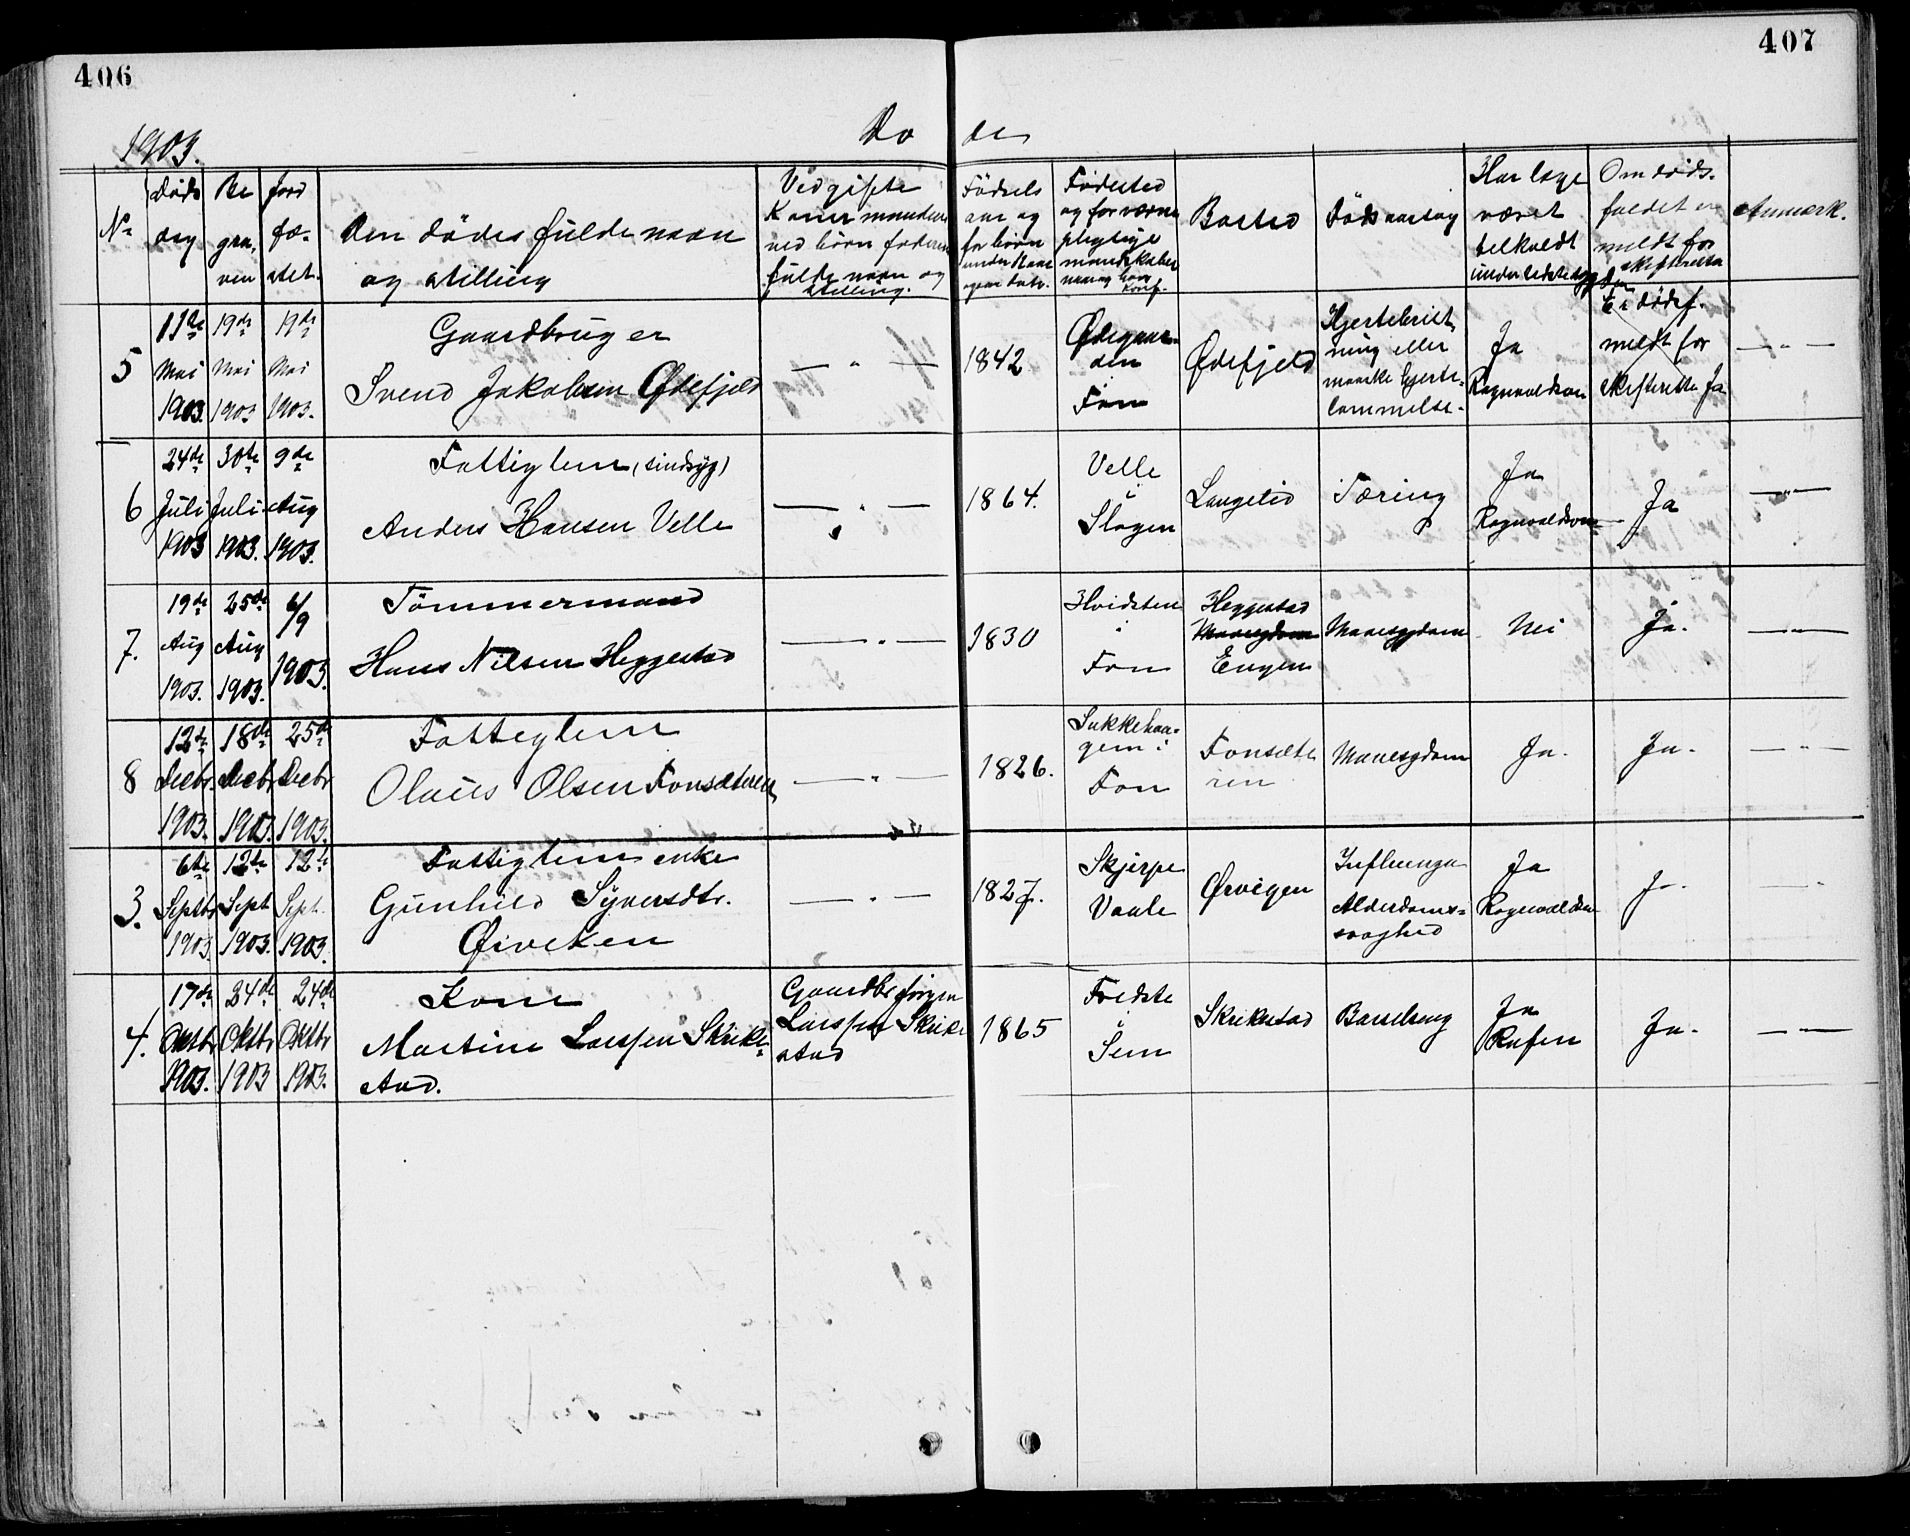 406
407
1903.
Dö de
No
Döds dag
Be gra, ven
Jord fæ- stet.
Den dödes fulde navn og stilling
Ved gifte Koner mandens ved börn faderens fulde navn og stilling.
Födsels aar og for börn under 1 aar ogsaa dato.
Födested og for værne pligtige mandskaber
Bosted
Dödsaarsag
Har læge været tilkaldt
Om döds- faldet er meldt for skifteretten
Anmærk.
5
11te Mai 1903
19de Mai 1903
19de Mai 1903.
Gaardbruger
Svend Jakobsen Ødefjeld
— " —
1842
Ødegaar- den Fon
Ødefjeld
Hjertebrist ning eller maaske hjerte- lammelse.
Ja Ragnvaldsen
Er dödsf. meldt for Skifteretten Ja
— " —
6
24de Juli 1903
30te Juli 1903.
9de Aug 1903.
Fattiglem (sindsyg)
Anders Hansen Velle
— " —
1864.
Velle i Slagen
Langelid
Tæring
Ja Ragnvaldsen
Ja
— " —
7.
19de Aug 1903.
25de Aug 1903.
6/9 1903.
Tömmermand
Hans Nilsen Heggestad
— " —
1830
Hvidsten i Fon
Heggestad Mavesygdom Engen
Mavesygdom
Nei
Ja.
— " —
8
12te Decbr. 1903.
18de Decbr 1903.
25de Decbr 1903.
Fattiglem
Olaus Olsen Fonsæteren
— " —
1826.
Sukkehau- gen i Fon
Fonsæte ren
Mavesygdom
Ja.
Ja.
— " —
3.
6te Septbr 1903
12te Sept 1903.
12te Sept. 1903.
Fattiglem enke
Gunhild Syversdtr.
Øiveken
— " —
1827.
Skjerpe Vaale
Ørvigen
Influenza Alderdoms- svaghed
Ja Ragnvaldsen
Ja.
— "
4.
17de Oktbr 1903.
24de Oktbr 1903
24de Oktbr 1903.
Kone
Martine Larssen Skrike- stad.
Gaardbr Jörgen Larssen Skrike stad
1865
Fredste i Sem
Skrikestad
Barselseng
Ja
Ja.
— " —